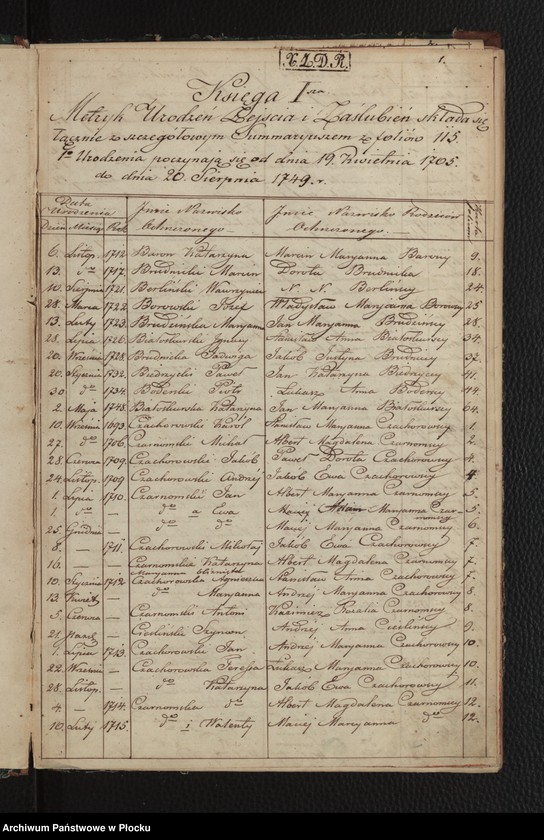 X.Z.D.R.
1.
Księga I sza
Metryk Urodzeń Zejścia i Zaślubień składa się
łącznie z szczegółowym Summaryuszem z foliów 115.
1mo Urodzenia poczynają się od dnia 19. Kwietnia 1705.
do dnia 20. Sierpnia 1749. r.
Data Urodzenia Imie Nazwisko Ochrzconego. Imie Nazwisko Rodziców Ochrzconego.
Dzień Miesiąc Rok
6. Listop. 1712. Baron Katarzyna Marcin Maryanna Barony 9.
13. dto 1717. Brudnicki Marcin Dorota Brudnicka 18.
10. Sierpnia 1721. Berliński Wawrzyniec N. N. Berlińscy 24.
28. Marca 1722. Borowski Józef Władysław Maryanna Borowscy 25
13. Luty 1723. Brudzińska Maryanna Jan Maryanna Brudzińscy 28.
28. Lipca 1726. Białoskurski Ignacy Stanisław Anna Białoskurscy 34.
20. Wrzesień 1728. Brudnicka Jadwiga Jakób Justyna Brudniccy 37.
20. Stycznia 1732. Paweł Jan Katarzyna 41.
30 dto 1734. Piotr Łukasz Anna 44.
2. Maja 1748. Białoskurska Katarzyna Jan Maryanna Białoskurscy 64.
10. Wrzesień 1693. Czachorowski Karól Stanisław Maryanna Czachorowscy 1.
27. dto 1706. Czarnomski Michał Albert Magdalena Czarnomscy 2.
28. Czerwca 1709. Czachorowski Jakób Paweł Dorota Czachorowscy 4.
24. Listop. 1709 Czachorowski Andrzej Jakób Ewa Czachorowscy 4.
1. Lipca 1710. Czarnomski Jan Albert Maryanna Czarnomscy 5.
1. dto — dto a Ewa Maciej Adam Maryanna Czarnomscy 5.
25. Grudnia — dto dto Maciej Maryanna Czarnomscy 6.
8. — 1711. Czachorowski Mikołaj Jakób Ewa Czachorowscy 7
16. — — Czarnomskie Katarzyna Maryanna bliźnięta Albert Magdalena Czarnomscy 7.
10. Stycznia 1712. Czachorowska Agnieszka Stanisław Anna Czachorowscy 7.
13. — dto Maryanna Andrzej Maryanna Czachorowscy 8.
5. Czerwca — Czarnomski Antoni Kazimierz Rozalia Czarnomscy 8.
21. — Cieśliński Szymon Andrzej Anna Cieślińscy 9.
1. Lipca 1713. Czachorowski Jan Andrzej Maryanna Czachorowscy 10.
22. Wrzesień — Czachorowska Teresja Łukasz Maryanna Czachorowscy 10.
28. Listop. — dto Katarzyna Jakób Ewa Czachorowscy 11.
4. — 1714. Czarnomska dto Albert Magdalena Czarnomscy 12.
10. Luty 1715. dto i Walenty Maciej Maryanna dto 12.
Archiwum Państwowe w Płocku